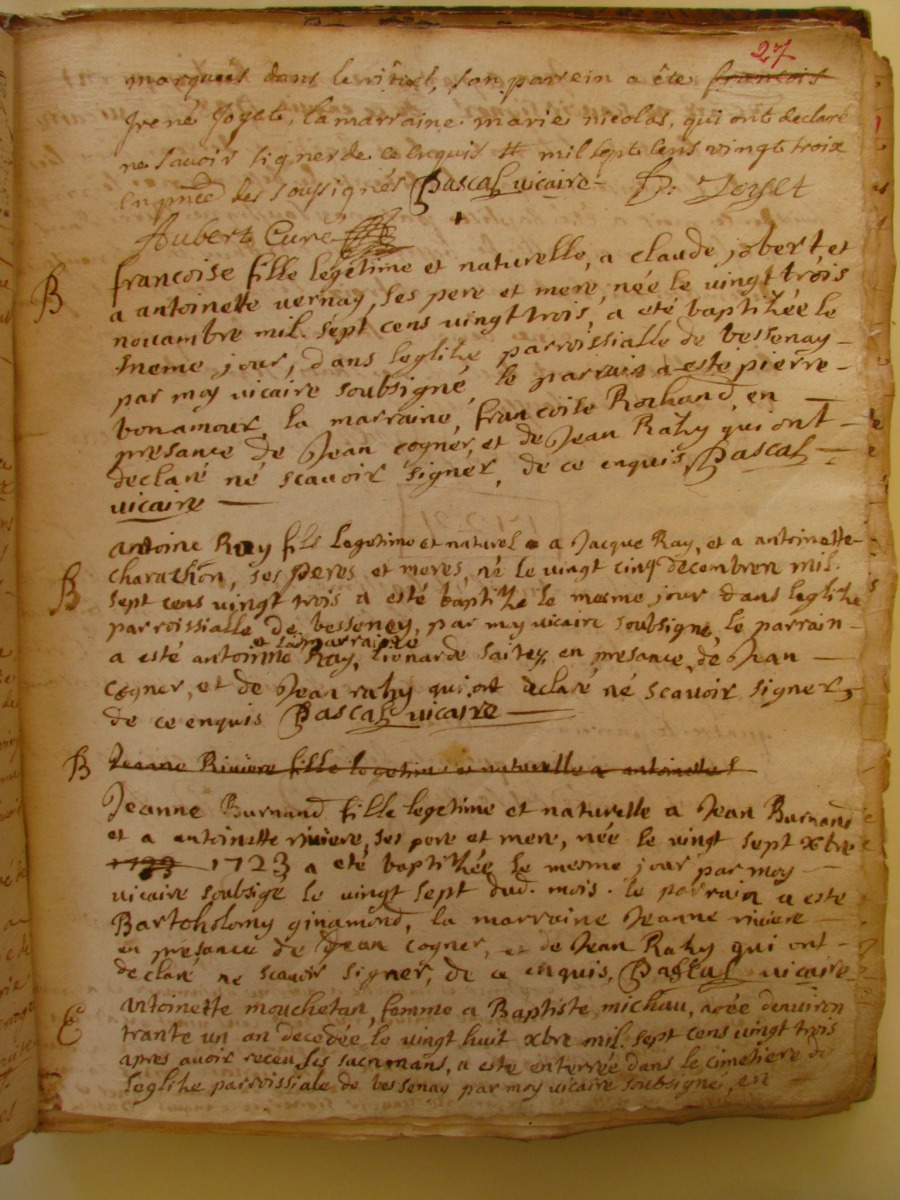 27
marquees dans le rituel, son parrein a éte francois
irené Joyet, la marraine marie nicolas, qui ont declaré
ne savoir signer de ce enquis # mil sept cens vingt troix
en pnce des soussignés Pascal vicaire - P. Joyet
Aubert Curé
B françoise fille legetime et naturelle, a claude jobert, et
a antoinette vernay, ses pere et mere, née le vingt trois
nouambre mil. sept cens vingt trois, a eté baptizée le
meme jour, dans leglize parroissialle de bessenay -
par moy vicaire soubsigné, le parrain a este pierre -
bonamour, la marraine, francoise Rochand, en
presance de Jean cogner, et de Jean Razy qui ont -
declaré né scauoir signer, de ce enquis, Pascal -
vicaire
antoine Ray fils legetime et naturel a Jacque Ray, et a antoinette
charachon, ses peres et meres, né le vingt cinq decembren mil.
B sept cens vingt trois a esté baptize le mesme jour dans leglize
parroissialle de bessenay, par moy vicaire soubsigne, le parrain -
et la marraine
a esté antoinne Ray, lionarde saitey, en presance, de Jean
cogner, et de Jean razy qui ont declaré né scauoir signer,
de ce enquis Pascal vicaire
B Jeanne Riviere fille legetime et naturelle a antoinette
Jeanne Burnand fille legetime et naturelle a Jean Burnand
et a antoinette riviere, ses pere et mere, née le vingt sept xbre
1723 a eté baptizée le mesme jour par moy
vicaire soubsigé le vingt sept dud. mois. le parrain a este
Bartholomy ginamond, la marraine Jeanne riviere
en presance de Jean cogner, et de Jean Razy qui ont -
declaré ne scauoir signer, de ce enquis, Pascal vicaire
E Antoinette mouchetan, femme a Baptiste michau, agée denuiron
trante un an decedée le vingt huit xbre mil. sept cens vingt trois
apres auoir receu ses sacremans, a este enterrée dans le cimetiere de
leglize parroissiale de bessenay par moy vicaire soubsigné, en